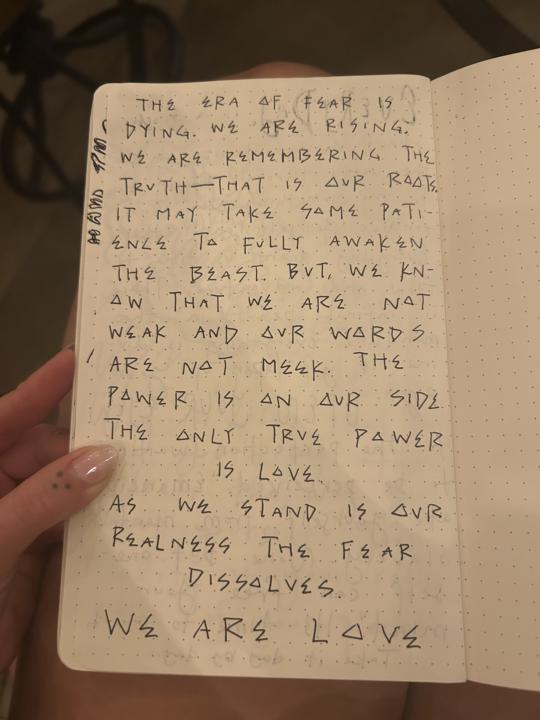 THE ERA OF FEAR IS
DYING. WE ARE RISING.
WE ARE REMEMBERING THE
TRUTH—THAT IS OUR ROOTS.
IT MAY TAKE SOME PATI-
ENCE TO FULLY AWAKEN
THE BEAST. BUT, WE KN-
OW THAT WE ARE NOT
WEAK AND OUR WORDS
ARE NOT MEEK. THE
POWER IS ON OUR SIDE.
THE ONLY TRUE POWER
IS LOVE.
AS WE STAND IS OUR
REALNESS THE FEAR
DISSOLVES.
WE ARE LOVE